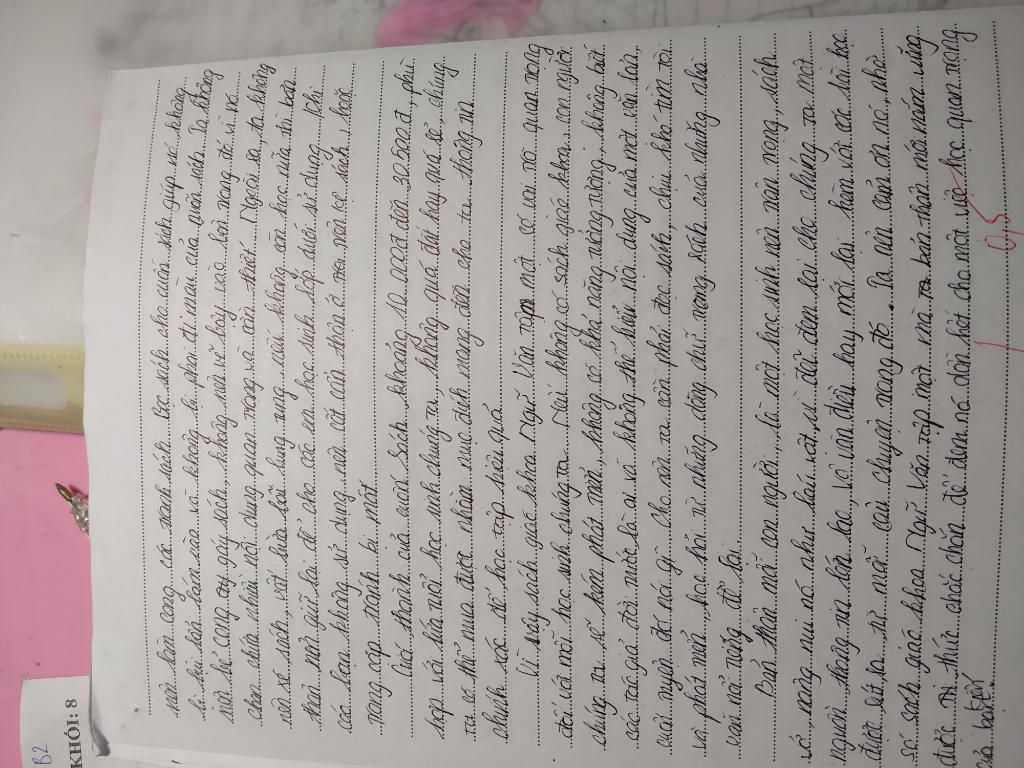 B2
KHỐI: 8
nên bàn cong các trang sách. Bọc sách cho cuốn sách giúp nó không
bị hư bốn bám vào và không bị phai đi màu của cuốn sách. Ta không
nên bẻ cong gáy sách, không nên vẽ bậy vào bên trong đó vì nó
chứa nhiều nội dung quan trọng và cần thiết. Ngoài ra, ta không
nên xé sách, vứt bừa bãi lung tung nếu không cần học nữa thì bạn
nên giữ lại để cho các em học sinh lớp dưới sử dụng. Khi
các bạn không sử dụng nên cất cẩn thận ở trên kệ sách, hoặc
trong cặp tránh bị mất.
Giá thành của cuốn sách khoảng 10.000đ đến 30.500.đ, phù
hợp với lứa mỗi học sinh chúng ta, không quá đắt hay quá rẻ, chúng
ta có thể mua được nhằm mục đích mang đến cho ta thông tin
chính xác để học tập hiệu quả.
Vì vậy sách giáo khoa Ngữ Văn tập một có vai trò quan trọng
đối với mỗi học sinh chúng ta. Nếu không có sách giáo khoa con người
chúng ta sẽ kém phát triển, không có khả năng tưởng tượng, không biết
các tác giả đời trước là ai và không thể hiểu nội dung của một văn bản,
cuốn truyện đó nói gì. Cho nên ta cần phải đọc sách, chịu khó tìm tòi
và phát triển, học hỏi từ những dòng chữ trong sách của những nhà
văn nổi tiếng để lại.
Bản thân mỗi con người, là một học sinh nên trân trọng sách
và nâng niu nó như báu vật, vì nó đã đem lại cho chúng ta một
nguồn thông tin lớn lao về văn điều hay mới lạ kèm với các bài học
được rút ra từ mỗi câu chuyện trong đó. Ta nên cảm ơn nó, nhờ
có sách giáo khoa Ngữ Văn tập một mà ta bản thân mới nắm vững
được tri thức chắc chắn để đem nó dẫn dắt cho một việc học quan trọng
của bản thân.
0,5